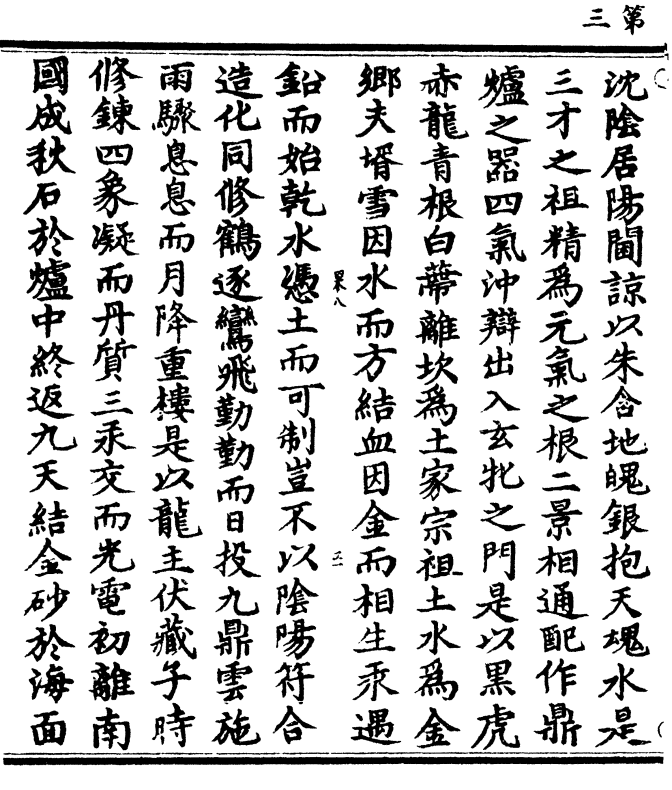 第三
沈陰居陽閫諒以朱含地魄銀抱天魂水是
三才之祖精為元氣之根二景相通配作鼎
爐之器四氣沖辯出入玄牝之門是以黑虎
赤龍青根白蔕離坎為土家宗祖土水為金
鄉夫壻雪因水而方結血因金而相生汞遇
鈆而始乾水憑土而可制豈不以陰陽符合
造化同修鶴逐鸞飛勤勤而日投九鼎雲施
雨驟息息而月降重樓是以龍主伏藏子時
修鍊四象凝而丹質三汞交而光電初離南
國成秋石於爐中終返九天結金砂於海面